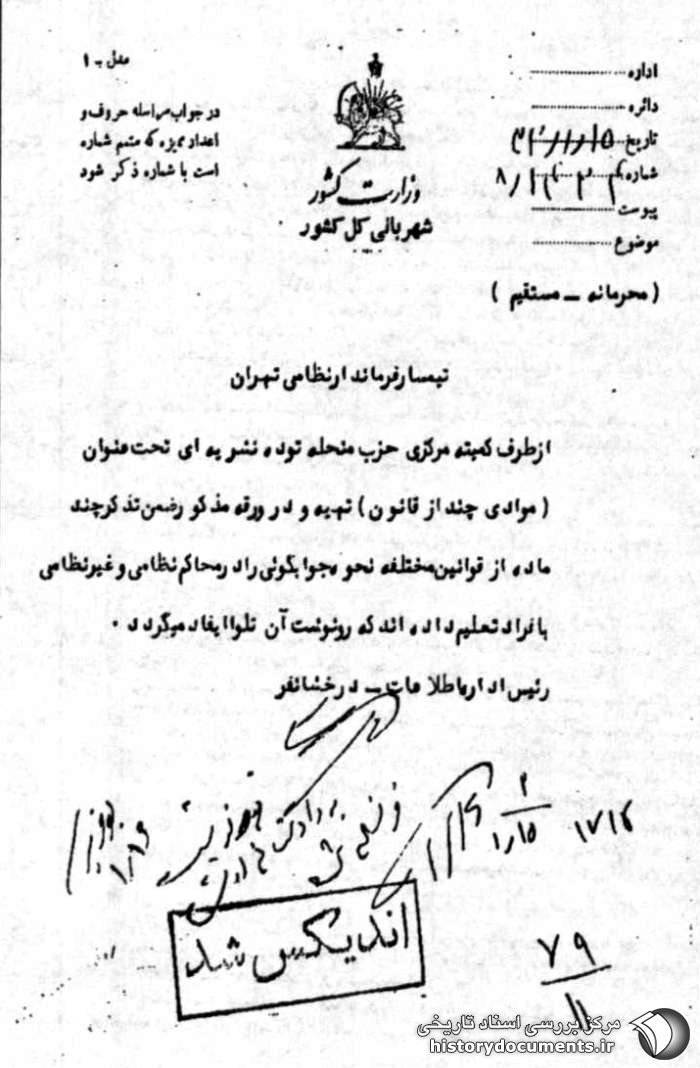 مدل - ۱
در جواب مراسله حروف و
اعداد ممیزه که متمم شماره
است با شماره ذکر شود
وزارت کشور
شهربانی کل کشور
اداره
دائره
تاریخ
شماره
پیوست
موضوع
( محرمانه - مستقیم )
تیمسار فرماندار نظامی تهران
از طرف کمیته مرکزی حزب منحله توده نشریه ای تحت عنوان
( موادی چند از قانون ) تهیه و در ورقه مذکور ضمن تذکر چند
ماده از قوانین مختلفه نحوه جوابگوئی را در محاکم نظامی و غیر نظامی
بافراد تعلیم داده اند که رونوشت آن تلوا ایفاد میگردد .
رئیس اداره اطلاعات - درخشانفر
۱۷۱۶
اندیکس شد
۷۹
۱۱
مرکز بررسی اسناد تاریخی
historydocuments.ir